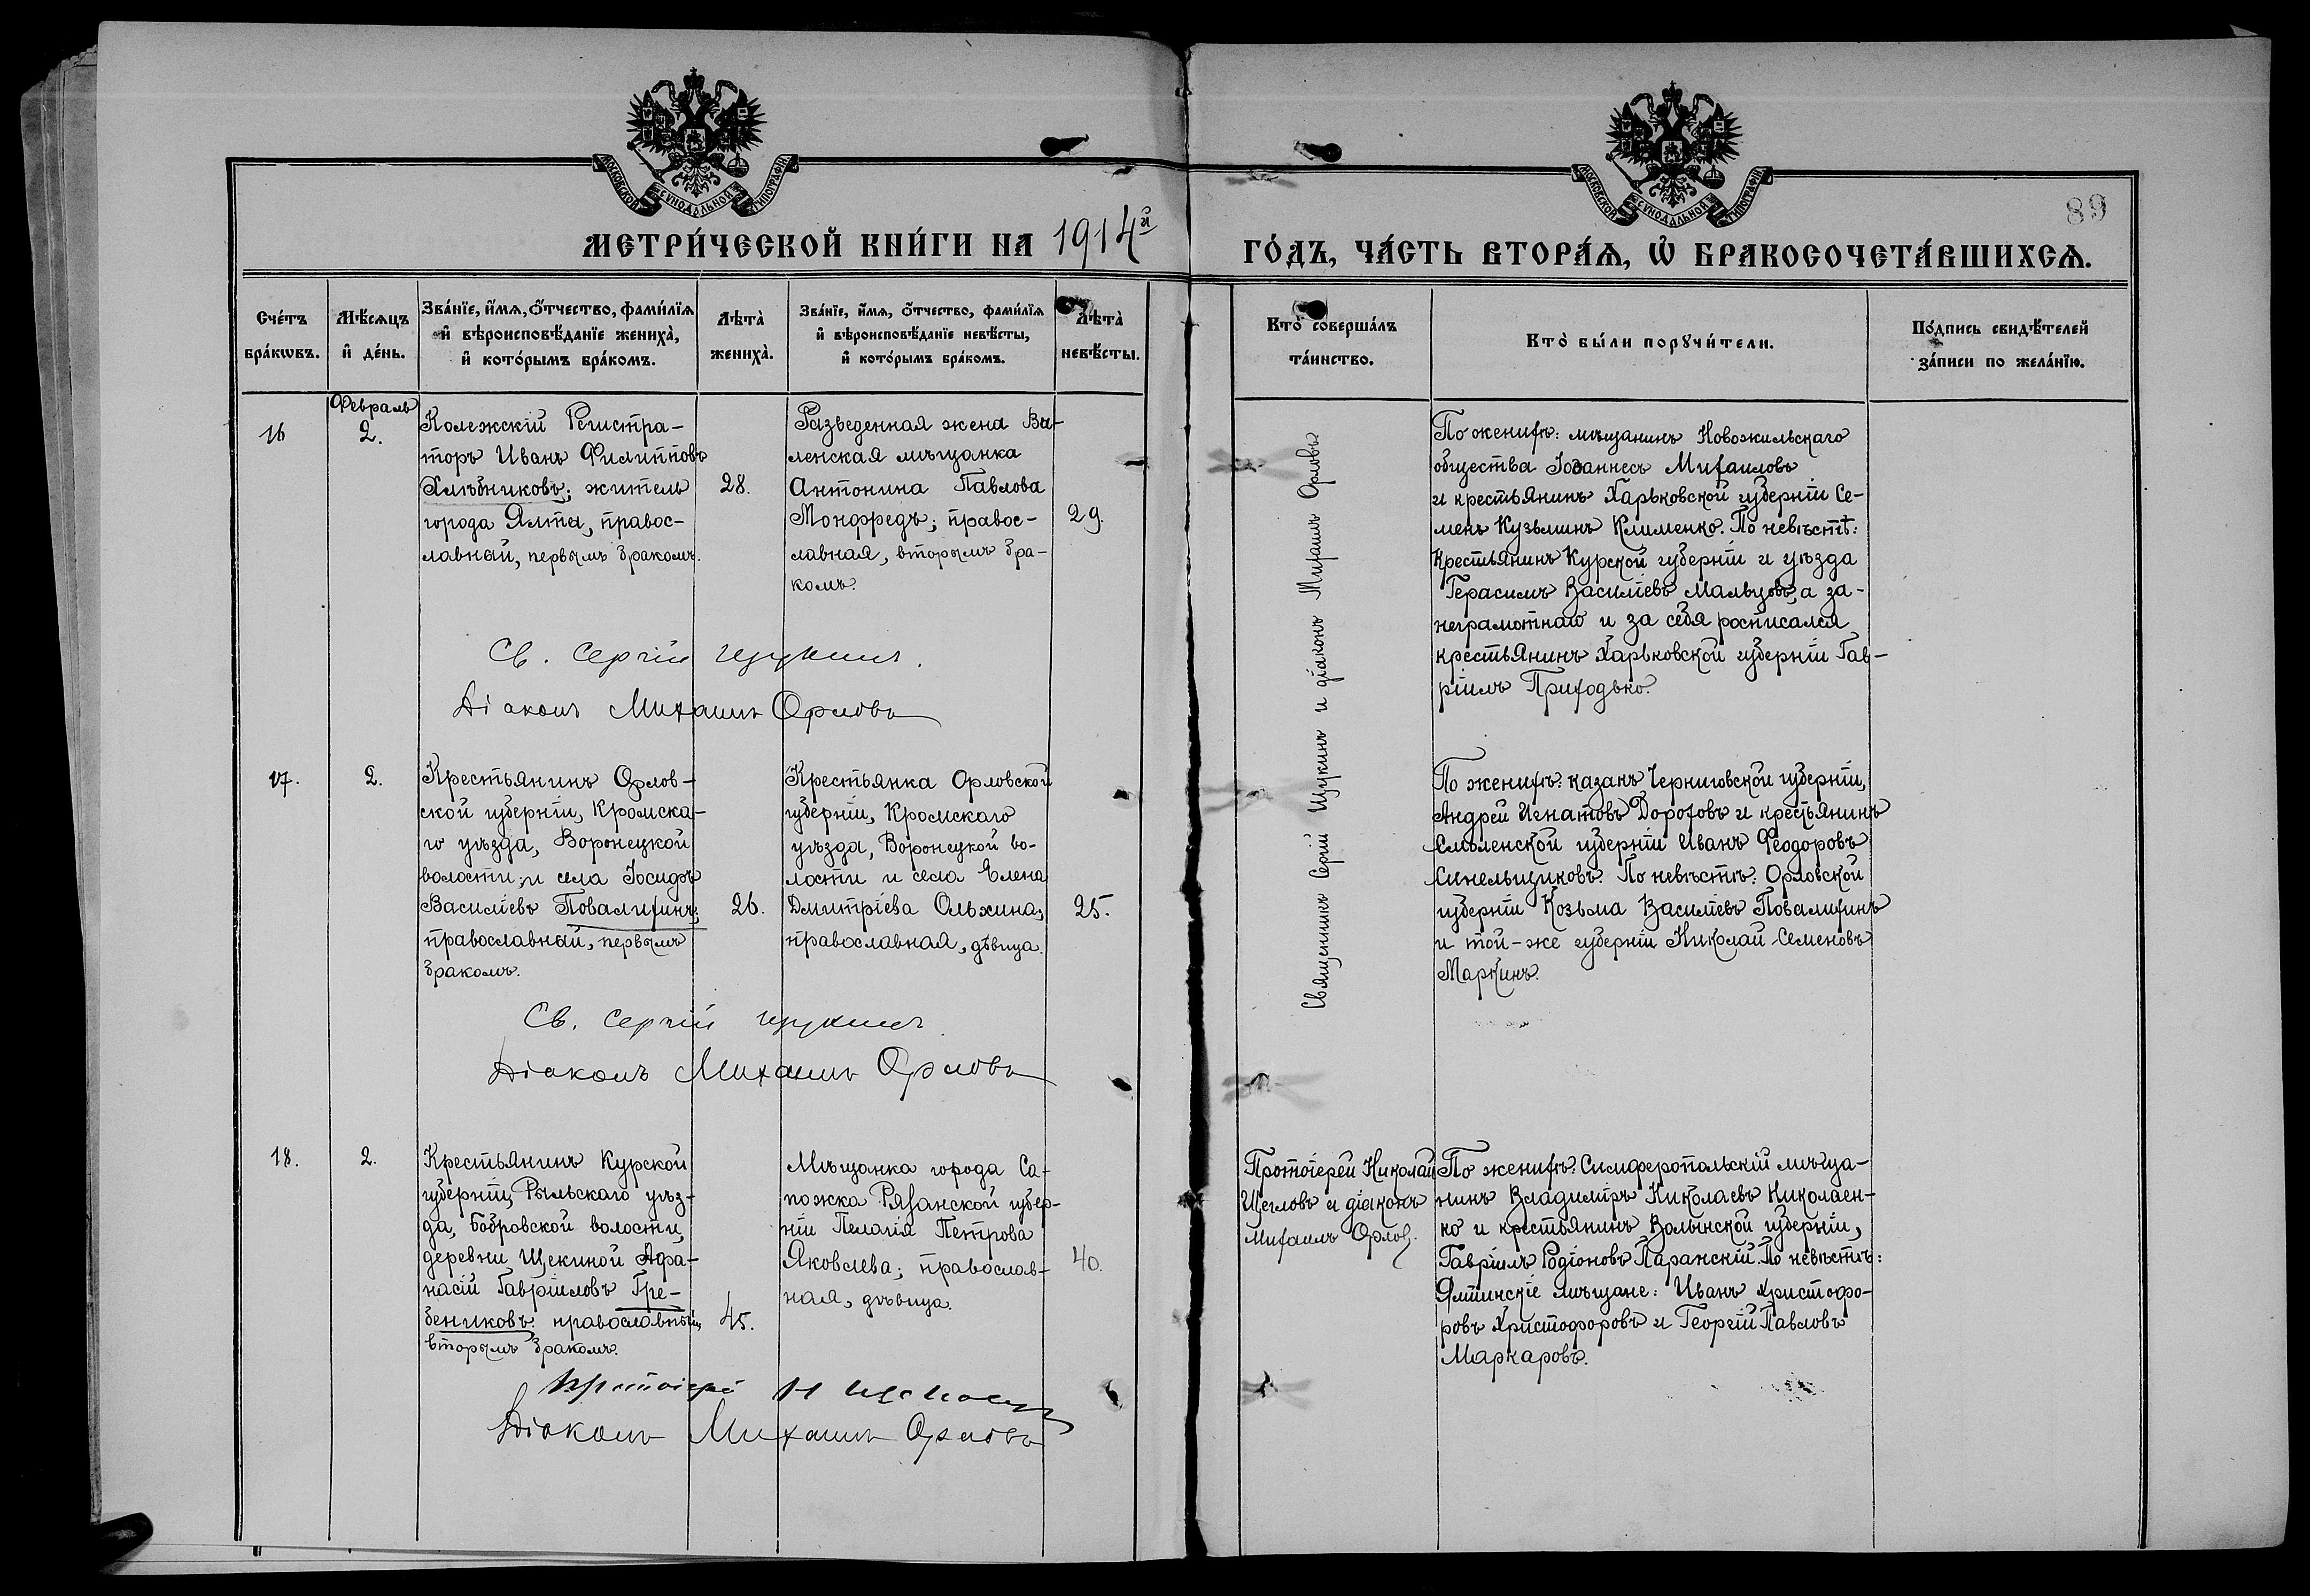 МОСКОВСКОЙ СѴНОДАЛЬНОЙ ТИПОГРАФІИ
МОСКОВСКОЙ СѴНОДАЛЬНОЙ ТИПОГРАФІИ
89
МЕТРИ́ЧЕСКОЙ КНИ́ГИ НА 1914й
ГО́ДЪ, ЧА́СТЬ ВТОРА́Ѧ, Ѡ҆ БРАКОСОЧЕТА́ВШИХСѦ.
Сче́тъ
бра́кѡвъ.
Мѣ́сѧцъ
и҆ де́нь.
Зва́нїе, и҆́мѧ, ѻ҆́тчество, фами́лїѧ
и҆ вѣроисповѣ́данїе жениха̀,
и҆ кото́рымъ бра́комъ.
Лѣта̀
жениха̀.
Зва́нїе, и҆́мѧ, ѻ҆́тчество, фами́лїѧ
и҆ вѣроисповѣ́данїе невѣ́сты,
и҆ кото́рымъ бра́комъ.
Лѣта̀
невѣ́сты.
Кто̀ соверша́лъ
та́инство.
Кто̀ бы́ли порꙋчи́тели.
По́дпись свидѣ́телей
за́писи по жела́нїю.
16
Февраль
2.
Колежскій Регистра-
торъ Иванъ Филипповъ
Хлѣбниковъ; житель
города Ялты, правос-
лавный, первымъ бракомъ.
28.
Разведенная жена Ви-
ленская мѣщанка
Антонина Павлова
Монфредъ; правос-
лавная, вторымъ бра-
комъ.
29.
Священникъ Сергій Щукинъ и діаконъ Михаилъ Орловъ
По женихѣ: мѣщанинъ Новожильскаго
общества Іоаннесъ Михаиловъ
и крестьянинъ Харьковской губерніи Се-
менъ Кузьминъ Клименко. По невѣстѣ:
Крестьянинъ Курской губерніи и уѣзда
Герасимъ Василіевъ Мальцовъ, а за-
неграмотнаго и за себя росписался
крестьянинъ Харьковской губерніи Гав-
ріилъ Приходько.
Св. Сергій Щукинъ.
Діаконъ Михаилъ Орловъ
17.
2.
Крестьянинъ Орлов-
ской губерніи, Кромска-
го уѣзда, Воронецкой
волости, и села Іосифъ
Василіевъ Повалихинъ;
православный, первымъ
бракомъ.
26.
Крестьянка Орловской
губерніи, Кромскаго
уѣзда, Воронецкой во-
лости и села Елена
Дмитріева Ольхина,
православная, дѣвица.
25.
По женихѣ: казакъ Черниговской губерніи,
Андрей Игнатовъ Дороховъ и крестьянинъ
Смоленской губерніи Иванъ Феодоровъ
Синельщиковъ. По невѣстѣ: Орловской
губерніи Козьма Василіевъ Повалихинъ
и той-же губерніи Николай Семеновъ
Маркинъ.
Св. Сергій Щукинъ
Діаконъ Михаилъ Орловъ
18.
2.
Крестьянинъ Курской
губерніи, Рыльскаго уѣз-
да, Бобровской волости,
деревни Щекиной Афа-
насій Гавріиловъ Гре-
бениковъ православный,
вторымъ бракомъ.
45.
Мѣщанка города Са-
пожка Рязанской губер-
ніи Пелагія Петрова
Яковлева; православ-
ная, дѣвица.
40.
Протоіерей Николай
Щегловъ и діаконъ
Михаилъ Орловъ.
По женихѣ: Симферопольскій мѣща-
нинъ Владимиръ Николаевъ Николаен-
ко и крестьянинъ Волынской губерніи,
Гавріилъ Родіоновъ Паранскій. По невѣстѣ:
Ялтинскіе мѣщане: Иванъ Христофо-
ровъ Христофоровъ и Георгій Павловъ
Маркаровъ.
Протоіерей Н Щегловъ
Діаконъ Михаилъ Орловъ